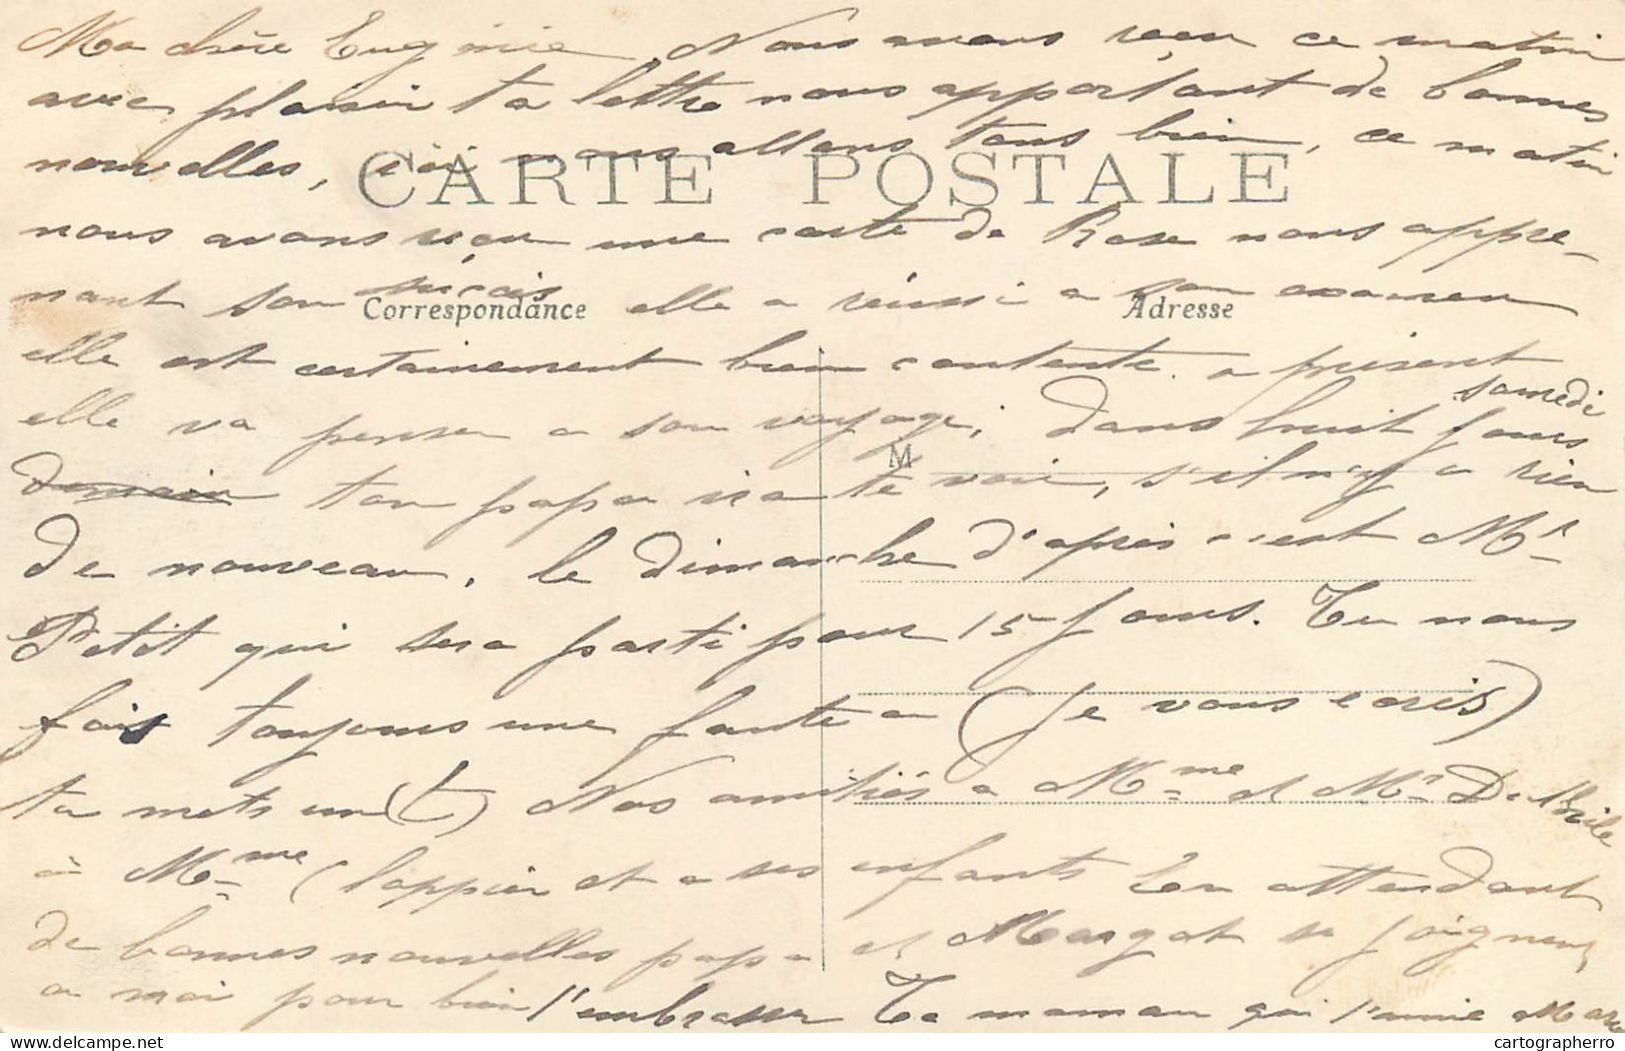 Ma chère Eugénie Nous avons reçu ce matin
avec plaisir ta lettre nous apportant de bonnes
nouvelles, ici nous allons tous bien, ce matin
CARTE POSTALE
nous avons reçu une carte de Rose nous appre-
nant son succès elle a réussi a son examen
Correspondance Adresse
elle est certainement bien contente a présent
elle va penser a son voyage, dans huit jours samedi
M
demain ton papa ira te voir, s'il n'y a rien
de nouveau, le dimanche d'après c'est Mr
Petit qui sera parti pour 15 jours. Tu nous
fais toujours une faute a (je vous écris)
tu mets un (t) Nos amitiés a Mme et Mr De
à Mme et a ses enfants En attendant
de bonnes nouvelles papa et Margot se joignent
a moi pour bien t'embrasser Ta maman qui t'aime
cartographerro